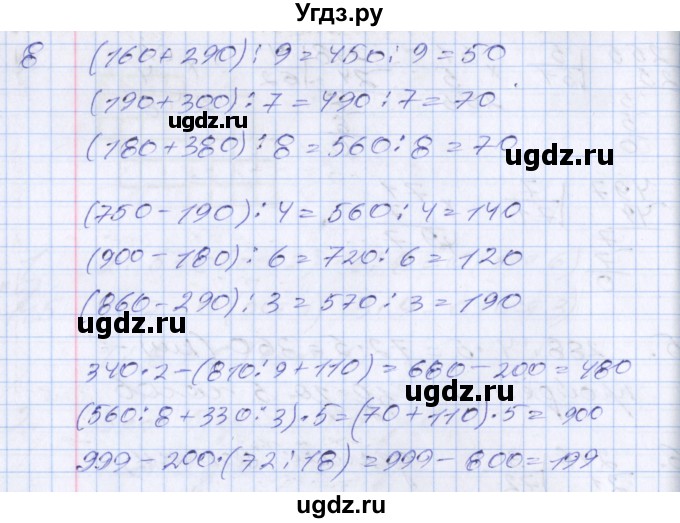 Угдз.ру
8 (160+290):9=450:9=50
(190+300):7=490:7=70
ugdz.ru
(180+380):8=560:8=70
ugdz.ru
(750-190):4=560:4=140
(900-180):6=720:6=120
(860-290):3=570:3=190
ugdz.ru
340·2-(810:9+110)=680-200=480
ugdz.ru
(560:8+330:3)·5=(70+110)·5=900
999-200·(72:18)=999-800=199
ugdz.ru
ugdz.ru